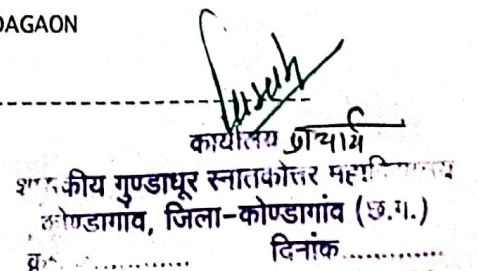 DAGAON
कार्यालय प्राचार्य
शासकीय गुण्डाधूर स्नातकोत्तर महाविद्यालय
कोण्डागांव, जिला-कोण्डागांव (छ.ग.)
क्र. ............ दिनांक ............